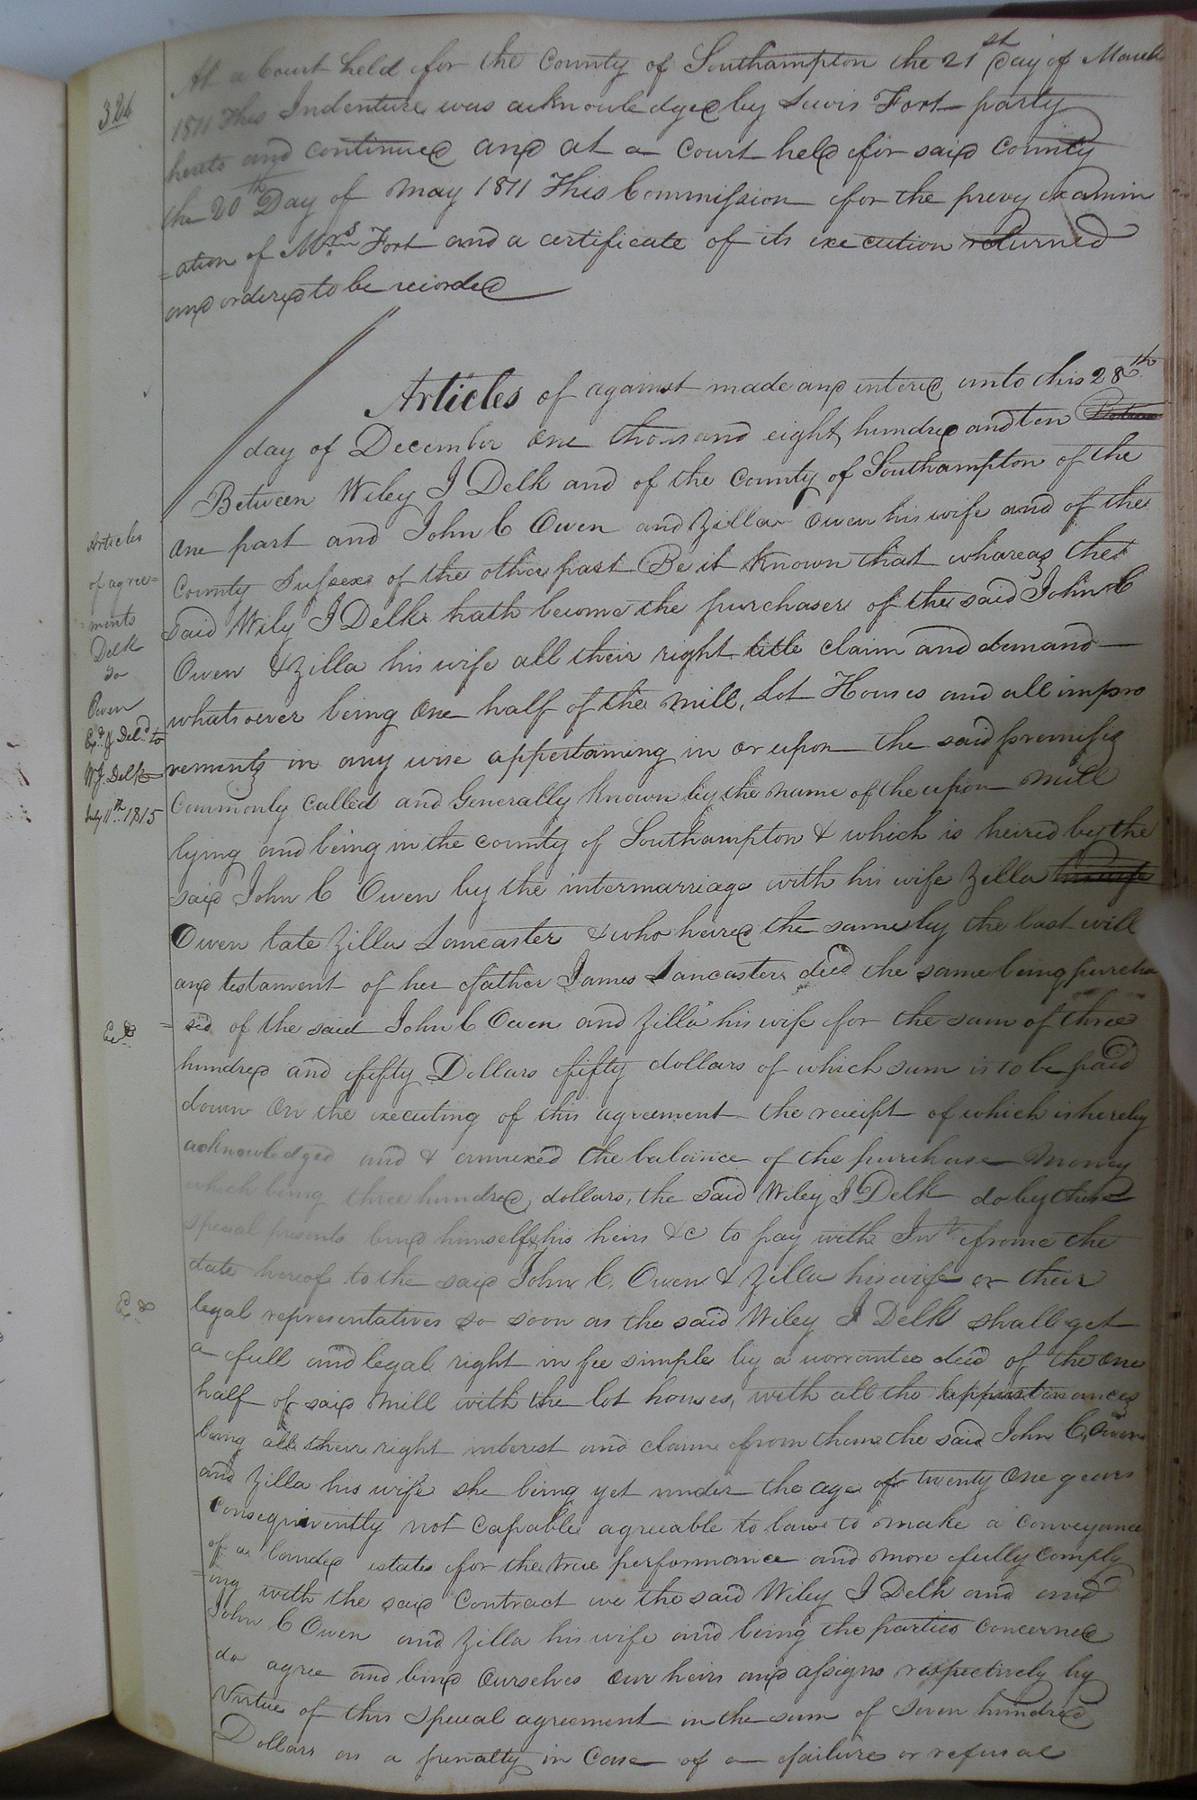 326
At a Court held for the County of Southampton the 21st day of March
1811 This Indenture was acknowledged by Lewis Fort party
hereto and continued and at a Court held for said County
the 20th Day of May 1811 This Commission for the prevy examin
=ation of Mrs Fort and a certificate of its execution returned
and ordered to be recorded
Articles of against made and entered unto this 28th
day of December one thousand eight hundred and ten
Between Wiley J Delk and of the County of Southampton of the
one part and John C Owen and Zilla Owen his wife and of the
County Sussex of the other part Be it Known that whareas the
said Wily J Delk hath become the purchaser of the said John C
Owen & Zilla his wife all their right title claim and demand
whatsoever being one half of the mill, Lot Houses and all impro
vements in any wise appertaining in or upon the said premises
Commonly called and Generally known by the name of the upon mill
lying and being in the county of Southampton & which is heired by the
said John C Owen by the intermarriage with his wife Zilla his wife
Owen late Zilla Lancaster & who heired the same by the last will
and testament of her father James Lancaster decd the same being purcha
=sed of the said John C Owen and Zilla his wife for the sum of three
hundred and fifty Dollars fifty dollars of which sum is to be paid
down on the executing of this agreement the receipt of which is hereby
acknowledged and & annexed the balance of the purchase money
which being three hundred dollars, the said Wiley J Delk do by these
special presents bind himself his heirs &c to pay with Int frome the
date hereof to the said John C. Owen & Zilla his wife or their
legal representatives so soon as the said Wiley J Delk shall get
a full and legal right in fee simple by a warrantee deed of the one
half of said mill with the lot houses, with all the appurtanances
being all their right interest and claim from them the said John C. Owen
and Zilla his wife she being yet under the age of twenty one years
consequently not capable agreeable to law to make a conveyance
of a landed estate for the true performance and more fully comply
=ing with the said Contract we the said Wiley J Delk and and
John C Owen and Zilla his wife and being the parties concerned
do agree and bind ourselves our heirs and assigns respectively by
virtue of this special agreement in the sum of seven hundred
Dollars as a penalty in Case of a failure or refusal
Articles
of agree=
=ments
Delk
to
Owen
Exd & Deld to
W. J. Delk
July 11th 1815